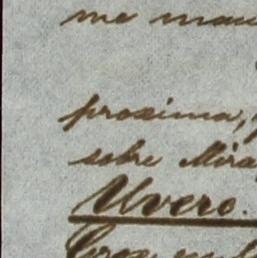 me man
proxima,
sobre Mira
Uvero.